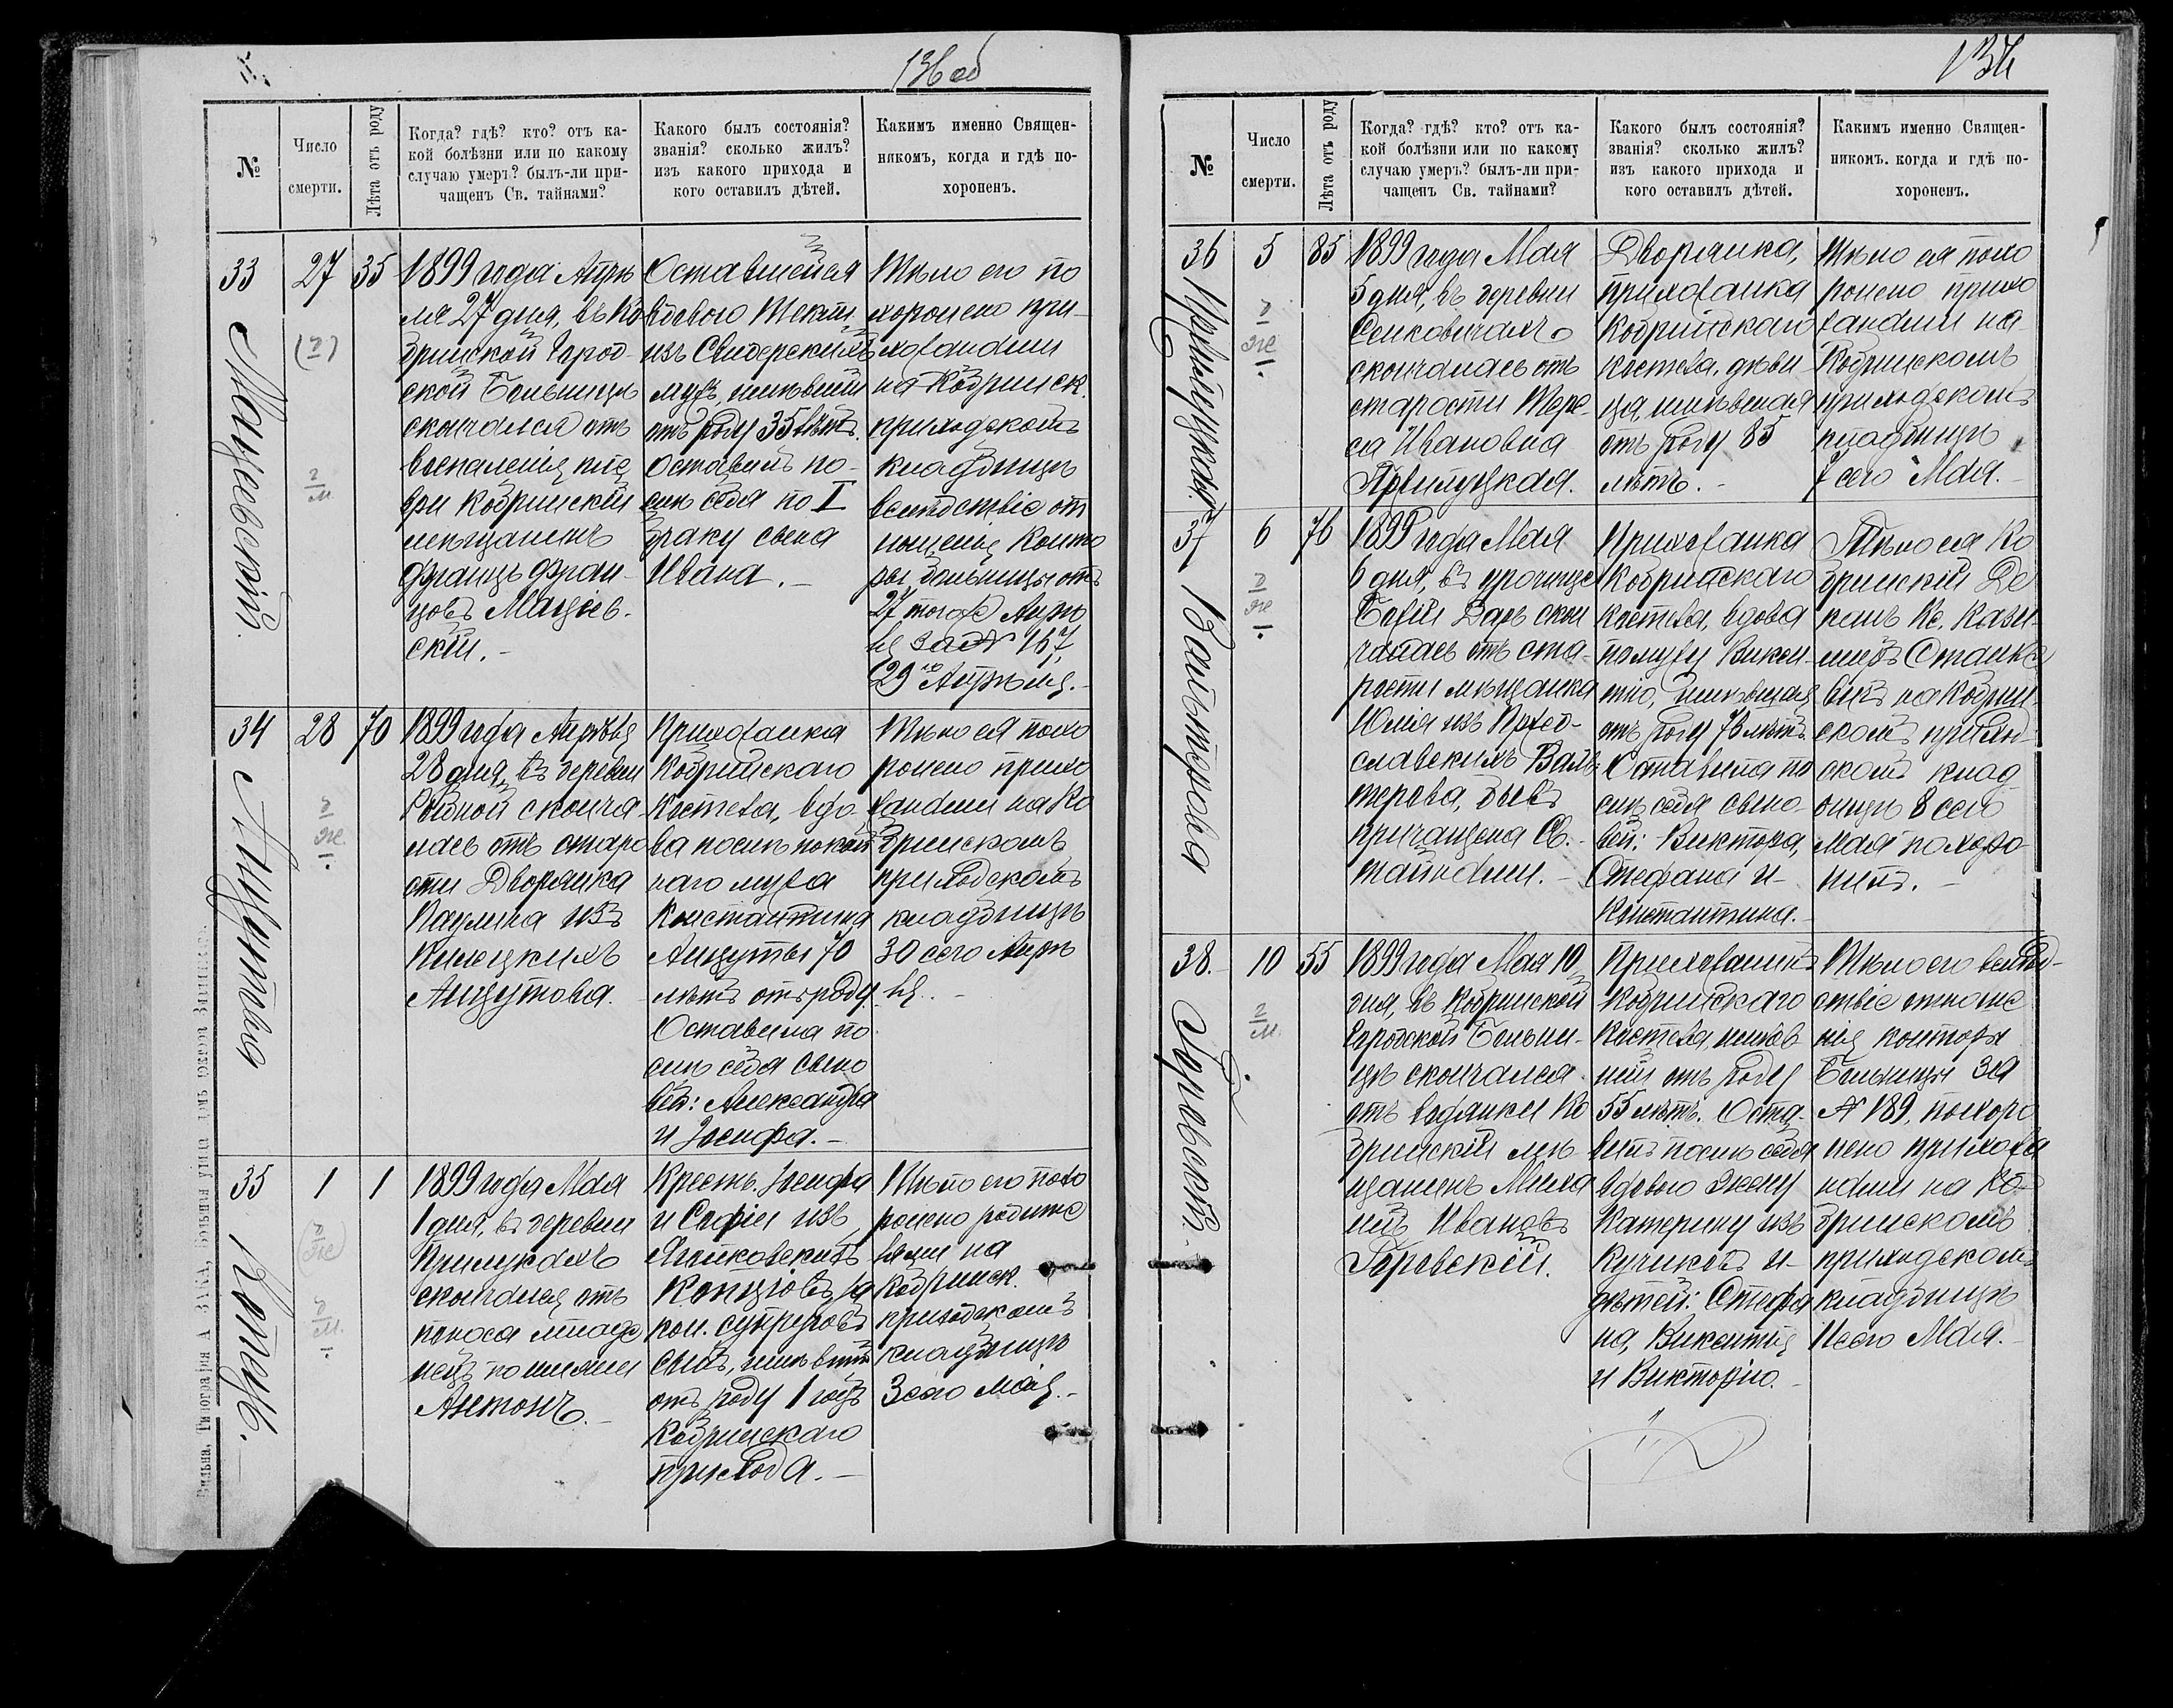 136 об
№
Число
смерти.
Лѣта отъ роду
Когда? гдѣ? кто? отъ ка-
кой болѣзни или по какому
случаю умеръ? былъ-ли при-
чащенъ Св. тайнами?
Какого былъ состоянія?
званія? сколько жилъ?
изъ какого прихода и
кого оставилъ дѣтей.
Какимъ именно Священ-
никомъ, когда и гдѣ по-
хороненъ.
33
Мацѣевскій.
27
35
1899 года Апрѣ
ля 27 дня, въ Ко
бринской Город-
ской Больницѣ
скончался отъ
воспаленія пле
вры Кобринскій
мещанинъ
Францъ Фран-
цовъ Маціев-
скій.-
Оставшейся
вдовою Текли,
изъ Сидерскихъ
мужъ, имѣвшій
отъ роду 35 лѣтъ.
Оставилъ по-
слѣ себя по I
браку сына
Ивана.-
Тѣло его по
хоронено при-
хожанами
на Кобринск.
приходскомъ
кладбищѣ
вслѣдствіе от
ношенія Конто
ры больницы отъ
27 того же Апрѣ
ля за № 167,
29го Апрѣля.-
34
Анцутова
28
70
1899 года Апрѣля
28 дня, въ деревни
Рыбной сконча-
лась отъ старо
сти Дворянка
Паулина изъ
Анцутова.
Прихожанка
Кобринскаго
Костела, вдо-
ва послѣ покой
наго мужа
Константина
Анцуты 70
лѣтъ отъ роду.
Оставила по
слѣ себя сыно
вей: Александра
и Іосифа.-
Тѣло ея похо
ронено прихо
жанами на Ко
бринскомъ
приходскомъ
кладбищѣ
30 сего Апрѣ
ля.-
35
Копецъ.
1
1
1899 года Мая
1 дня, въ деревни
Прилукахъ
скончался отъ
поноса младе
нецъ по имени
Антонъ.-
Крест. Іосифа
и Софіи изъ
Копцювъ за
кон. супруговъ
сынъ, имѣвшій
отъ роду 1 годъ
Кобринскаго
прихода.-
Тѣло его похо
ронено родите
лями на
Кобринск.
приходскомъ
кладбищѣ
3 сего Мая.-
№
Число
смерти.
Лѣта отъ роду
Когда? гдѣ? кто? отъ ка-
кой болѣзни или по какому
случаю умеръ? былъ-ли при-
чащенъ Св. тайнами?
Какого былъ состоянія?
званія? сколько жилъ?
изъ какого прихода и
кого оставилъ дѣтей.
Какимъ именно Священ-
никомъ. когда и гдѣ по-
хороненъ.
36
5
85
1899 года Мая
5 дня, въ деревни
Сенковичахъ
скончалась отъ
старости Тере-
са Ивановна
Дворянка,
прихожанка
Кобринскаго
Костела, дѣви
ца, имѣвшая
отъ роду 85
лѣтъ.-
Тѣло ея похо
ронено прихо
жанами на
Кобринскомъ
приходскомъ
кладбищѣ
7 сего Мая.-
37
Вальтерова
6
76
1899 года Мая
6 дня, въ урочище
Божій Даръ скон
чалась отъ ста-
рости мѣщанка
Юлія изъ Пржес-
славскихъ Валь-
терова, бывъ
причащена Св.
тайнами.-
Прихожанка
Кобринскаго
Костела, вдова
по мужу Викен-
тію, имѣвшая
отъ роду 76 лѣтъ.
Оставила по
слѣ себя сыно-
вей: Виктора,
Стефана и-
Константина.-
Тѣло ея Ко
бринскій Де
канъ Кс. Кази-
миръ Станке
вичъ на Кобрин-
скомъ приход-
скомъ клад
бищѣ 8 сего
Мая похоро
нилъ.-
38.
Горовскій.
10
55
1899 года Мая 10
дня, въ Кобринской
Городской Больни-
цѣ скончался
отъ водянки Ко
бринскій мѣ
щанинъ Миха
илъ Ивановъ
Горовскій.
Прихожанинъ
Кобринскаго
Костела, имѣв
шій отъ роду
55 лѣтъ. Оста-
вилъ послѣ себя
вдовою жену
Катерину изъ
Кучиковъ и-
дѣтей: Стефа
на, Викентія
и Викторію.-
Тѣло его вслѣд-
ствіе отноше
нія конторы
Больницы за
№ 189, похоро
нено прихожа
нами на Ко-
бринскомъ
приходскомъ
кладбищѣ
11 сего Мая.-